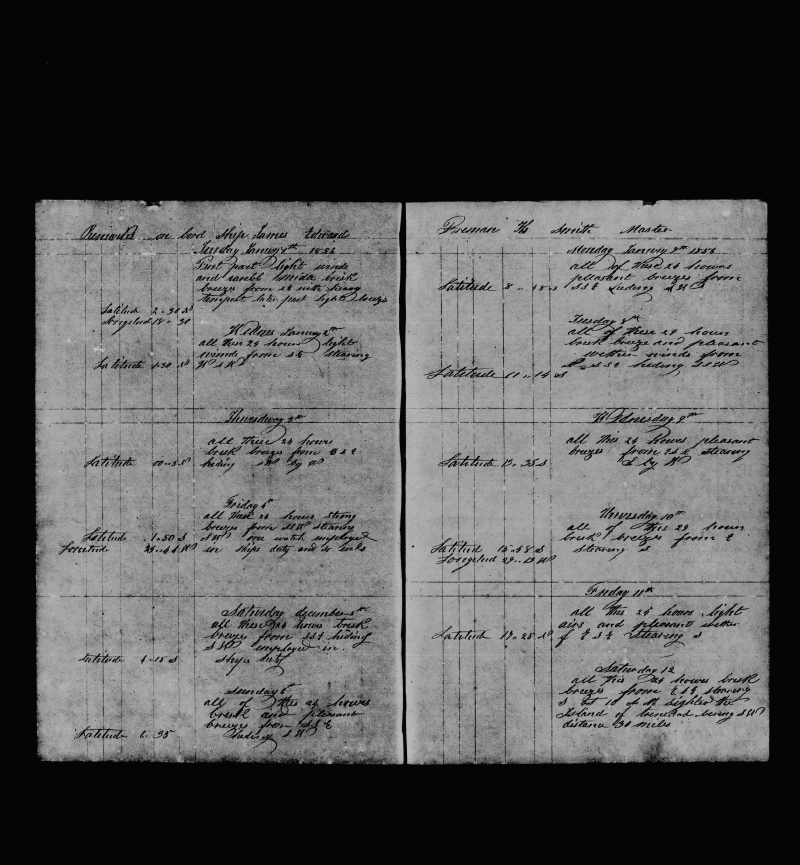 Remarks on bord Ship James Edward
Tuesday January 1th 1856
First part light winds
and midd bresk
breezes from
tempest later part light breezes
Latitude 2-30 N
Longetud 18-30
January 2th
all these 24 hours light
winds from S E stearing
Latitude 1-30 N
Thursdway 3th
all these 24 howrs
bresk breezes from S S E
heding SW by W
Latitude 00-
Friday 4th
all these 24 hours strong
breezes from stearing
S W one watch employed
on ships duty and
Latitude 1-50 S
Saturday december 5th
all these 24 howrs bresk
breezes from SSE heding
S W employed in
Ships duty
Latitude 4-15 S
Sunday 6th
all of this 24 howrs
bresk and pleasant
breezes from S S E
heding S W
Latitude 6-35
Freman H Smith Master
Monday January 7th 1856
all of these 24 howrs
pleasant breezes from
S S E heding S W
Latitude 8-18 S
Tuesday 8th
all of these 24 hours
bresk breeze and pleasant
wether winds from
S S E heding S S W
Latitude 11-14 S
Wednesday 9th
all this 24 howrs pleasant
breezes from S E stearing
S by W
Latitude 13-35 S
Thursday 10th
all of this 24 hours
bresk breezes from E
stearing S
Latitud 15-48 S
Longetud 29-
Friday 11th
all this 24 hours light
airs and pleasant wether
from E S E Stearing S
Latitude 17-25
Saturday 12
all this 24 howrs bresk
breezes from E S E stearing
S at 10 sighted the
Island of trinedad bearing SW
distance 30 miles